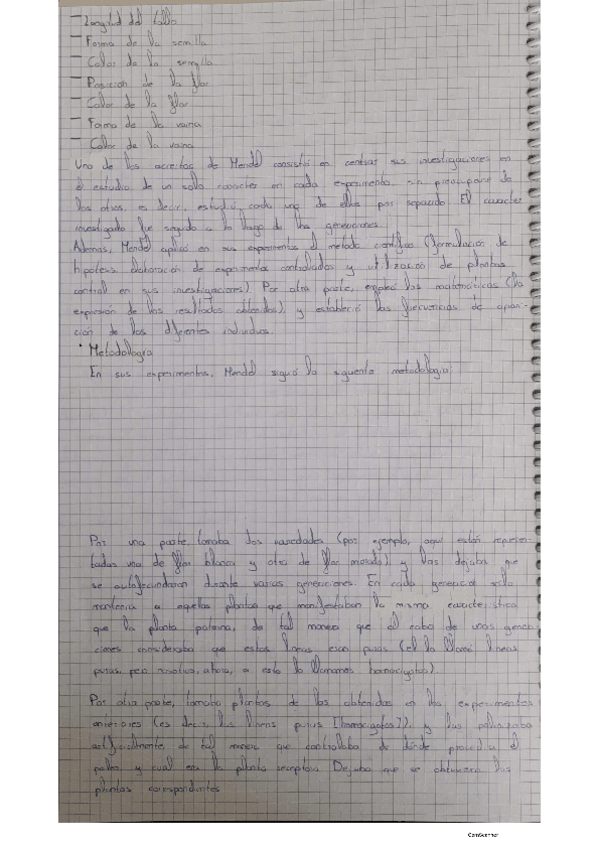 - Longitud del tallo
- Forma de la semilla
- Color de la semilla
- Posición de la flor
- Color de la flor
- Forma de la vaina
- Color de la vaina
Uno de los aciertos de Mendel consistió en centrar sus investigaciones en
el estudio de un solo carácter en cada experimento, sin preocuparse de
los otros, es decir, estudió cada uno de ellos por separado. El carácter
investigado fue seguido a lo largo de las generaciones.
Además, Mendel aplicó en sus experimentos el método científico (formulación de
hipótesis, elaboración de experimentos controlados y utilización de plantas
control en sus investigaciones). Por otra parte, empleó las matemáticas (la
expresión de los resultados obtenidos) y estableció las frecuencias de apari-
ción de los diferentes individuos.
• Metodología
En sus experimentos, Mendel siguió la siguiente metodología:
Por una parte, tomaba dos variedades (por ejemplo, aquí están represen-
tadas una de flor blanca y otra de flor morada) y las dejaba que
se autofecundaran durante varias generaciones. En cada generación solo
mantenía a aquellas plantas que manifestaban la misma característica
que la planta paterna, de tal manera que al cabo de unas genera-
ciones consideraba que estas líneas eran puras (él lo llamó líneas
puras, pero nosotros, ahora, a esto lo llamamos homocigotos).
Por otra parte, tomaba plantas de las obtenidas en los experimentos
anteriores (es decir, las líneas puras [homocigotos]), y las polinizaba
artificialmente, de tal manera que controlaba de dónde procedía el
polen y cuál era la planta receptora. Dejaba que se obtuvieran las
plantas correspondientes
CamScanner